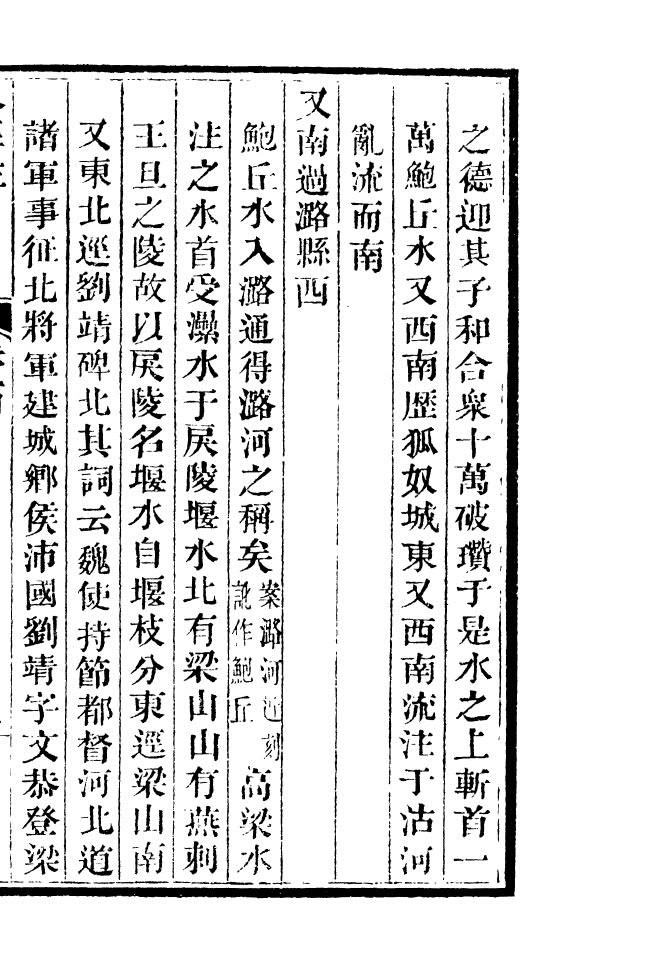 之德迎其子和合衆十萬破瓚于是水之上斬首一
萬鮑丘水又西南歷狐奴城東又西南流注于沽河
亂流而南
又南過潞縣西
鮑丘水入潞通得潞河之稱矣案潞河近刻訛作鮑丘高梁水
注之水首受㶟水于戾陵堰水北有梁山山有燕剌
王旦之陵故以戾陵名堰水自堰枝分東逕梁山南
又東北逕劉靖碑北其詞云魏使持節都督河北道
諸軍事征北將軍建城鄉侯沛國劉靖字文恭登梁